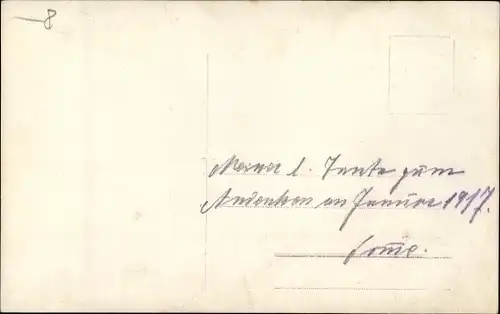 —8
Meiner l. Tante zum
Andenken an Januar 1917.